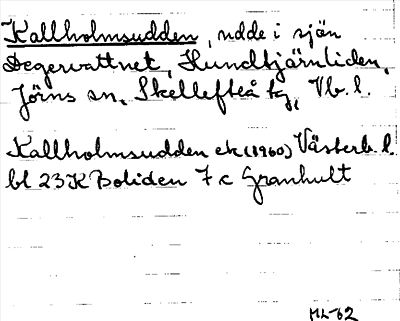 Kallholmsudden, udde i sjön
Degervattnet, Hundtjärnliden,
Jörns sn, Skellefteå tg, Vb. l.
Kallholmsudden ek (1960) Västerb. l.
bl 23K Boliden 7 c Granhult
ML-62